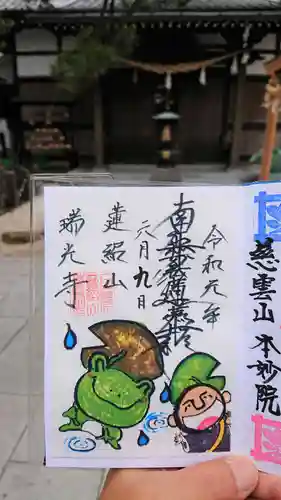 慈雲山 本妙院
令和元年
南無妙法蓮華経
六月九日
蓮紹山
瑞光寺